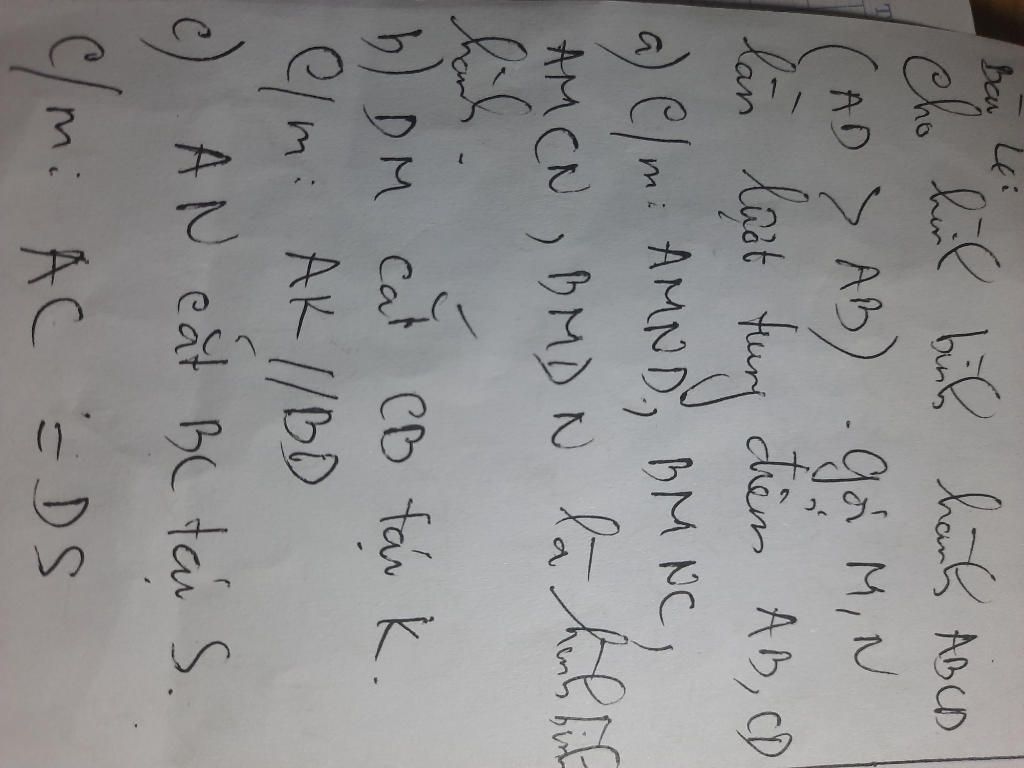 Bài Lẻ:
Cho hình bình hành ABCD
(AD > AB). Gọi M, N
lần lượt trung điểm AB, CD
a) C/m: AMND; BMNC,
AMCN, BMDN là hình bình
hành.
b) DM cắt CB tại K.
C/m: AK//BD
c) AN cắt BC tại S.
C/m: AC = DS